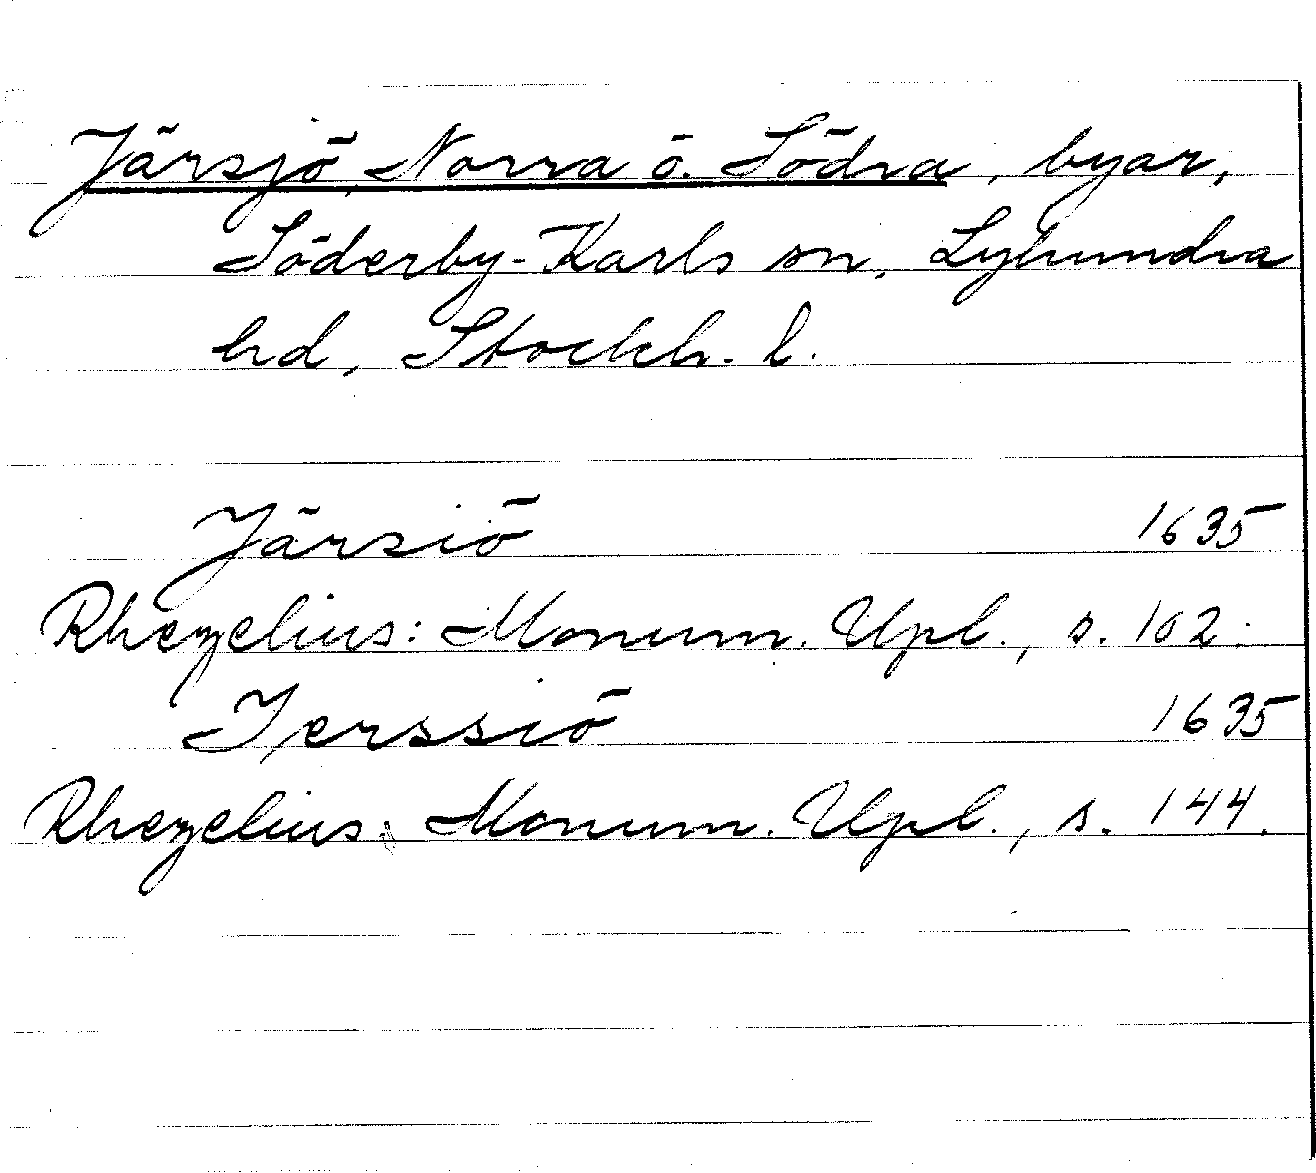 Järsjö, Norra o. Södra, byar,
Söderby-Karls sn, Lyhundra
hd, Stockh. l.
Järsiö 1635
Rhezelius: Monum. Upl., s. 102.
Jerssiö 1635
Rhezelius: Monum. Upl., s. 144.